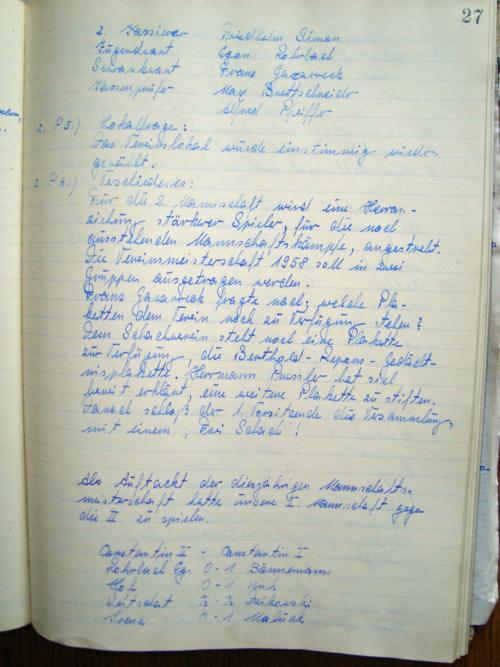 27
2. Kassierer Friedhelm Simon
Jugendwart Egon Rohrbach
Schrankwart Franz Gazarreck
Kassenprüfer Max Brettschneider
Alfred Pfeiffer
z. P 5.) Lokalfrage:
Das Vereinslokal wurde einstimmig wieder-
gewählt.
z. P 6.) Verschiedenes:
Für die 2. Mannschaft wird eine Heran-
ziehung stärkerer Spieler, für die noch
ausstehenden Mannschaftskämpfe, angestrebt.
Die Vereinsmeisterschaft 1958 soll in zwei
Gruppen ausgetragen werden.
Franz Gazarreck fragte nach, welche Pla-
ketten dem Verein noch zu Verfügung stehen?
Dem Schachverein steht noch eine Plakette
zur Verfügung, die Berthold-Repons-Gedächt-
nisplakette. Herrmann Pressler hat sich
bereit erklärt, eine weitere Plakette zu stiften.
Danach schloß der 1. Vorsitzende die Versammlung,
mit einem, Frei Schach!
Als Auftackt der diesjährigen Mannschafts-
meisterschaft hatte unsere I. Mannschaft gegen
die II. zu spielen.
Constantin II - Constantin I
Rohrbach Eg. 0-1 Bännemann
0-1
½-½
0-1